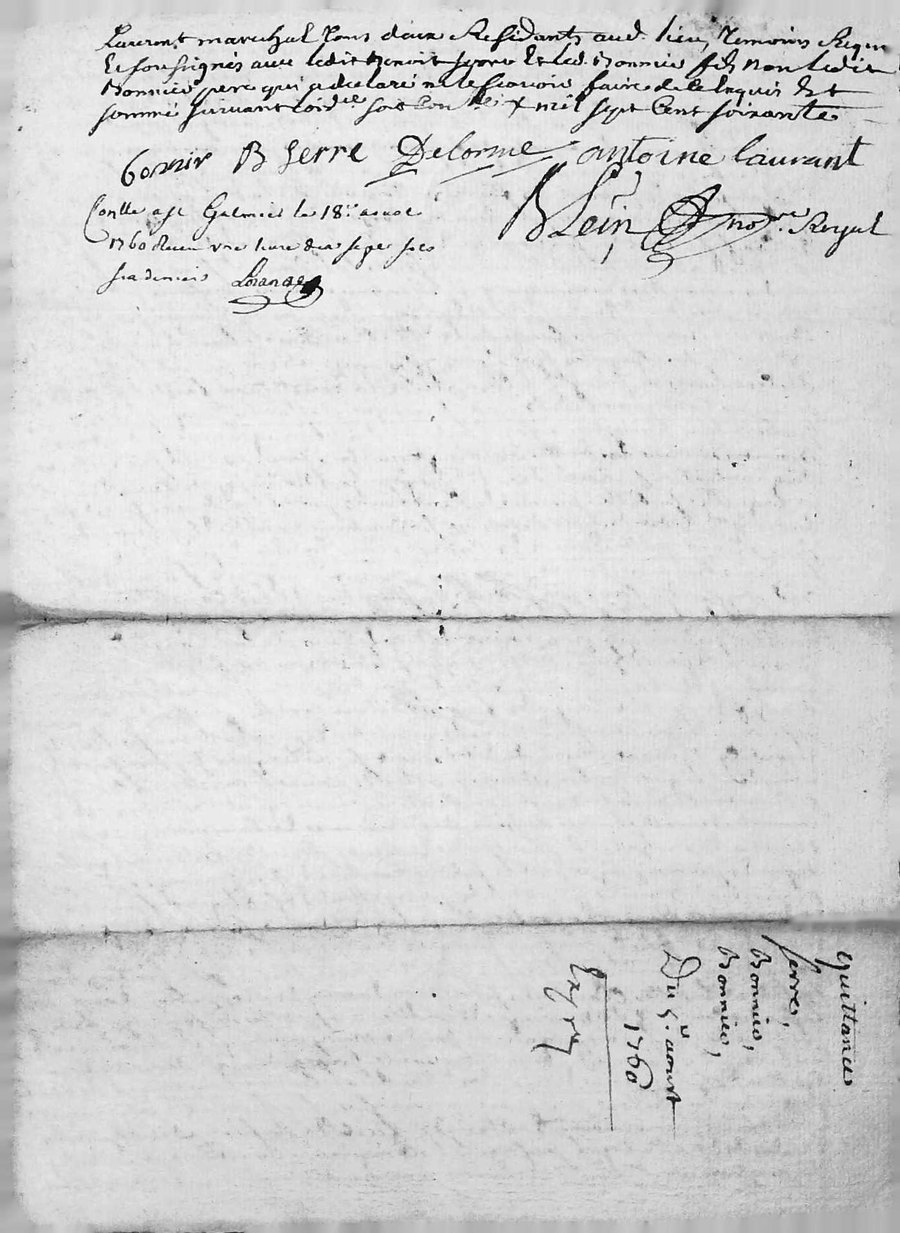 Laurent marechal tous deux Residants aud. lieu, Temoins Requis
Et soussignés avec ledit Benoit serre Et led. Bonnier fils non ledit
Bonnier pere qui a declaré ne le scavoir faire de ce Enquis Et
sommé suivant lord.ce soit Con mil sept Cent soixante
bonnir B Serre Delorme antoine laurant
BLein no.re Royal
Conllé a St Galmier le 18.e aout
1760 Receu une livre dix sept sols
six deniers
quittance
serre,
Bonnier,
Bonnier,
Du 5.e aoust
1760
Exp.ée